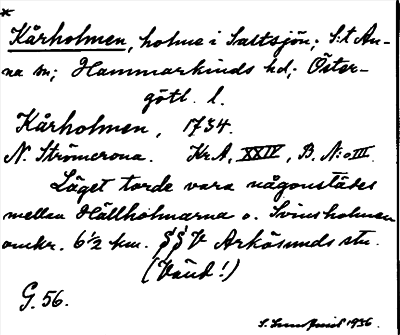 *
Kårholmen, holme i Saltsjön; S:t An-
na sn; Hammarkinds hd; Öster-
götl. l.
Kårholmen, 1734.
N. Strömcrona. Kr.A, XXIV, B. N:o III.
Läget torde vara någonstädes
mellan Hällholmarna o. Svinsholmen
omkr. 6½ km. SSV Arkösunds stn.
(Vänd!)
G. 56.
1936.